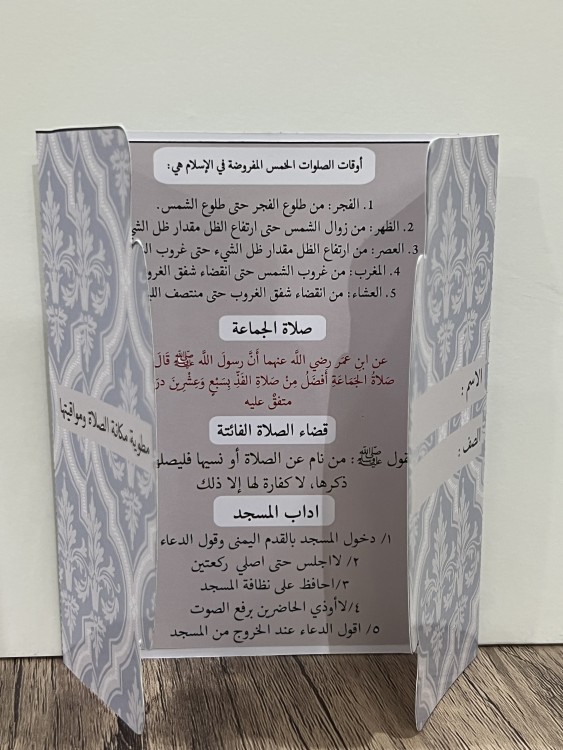 أوقات الصلوات الخمس المفروضة في الإسلام هي:
1. الفجر: من طلوع الفجر حتى طلوع الشمس.
2. الظهر: من زوال الشمس حتى ارتفاع الظل مقدار ظل
3. العصر: من ارتفاع الظل مقدار ظل الشيء حتى غروب
4. المغرب: من غروب الشمس حتى انقضاء شفق
5. العشاء: من انقضاء شفق الغروب حتى منتصف
صلاة الجماعة
عن ابن عمَر رضي اللَّه عنهما أَنَّ رسولَ اللَّه ﷺ قَالَ
صَلاةُ الجَمَاعَةِ أَفضَلُ مِنْ صَلاةِ الفَذِّ بِسَبْعٍ وَعِشْرِينَ
متفقٌ عليه
قضاء الصلاة الفائتة
ﷺ : من نام عن الصلاة أو نسيها
ذكرها، لا كفارة لها إلا ذلك
اداب المسجد
١/ دخول المسجد بالقدم اليمنى وقول الدعاء
٢/ لااجلس حتى اصلي ركعتين
٣/احافظ على نظافة المسجد
٤/لاأوذي الحاضرين برفع الصوت
٥/ اقول الدعاء عند الخروج من المسجد
الاسم :
الصف :
مطوية مكانة الصلاة ومواقيتها